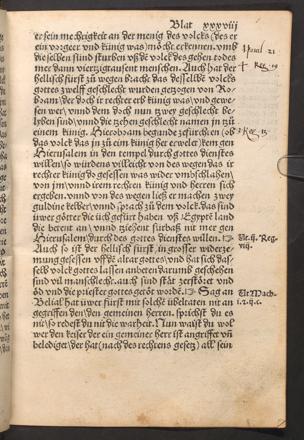 Blat xxxviij
er sein mechtigkeit an der menig des volcks (des er
ein vorgeer vnd künig was) möcht erkennen. vmb
die selben sünd sturben vß dē volck des gehen todes
mer dann viertzigtausent menschen. Auch hat der
hellisch fürst zů wegen bracht das desselbē volcks
gottes zwelff geschlecht wurden gezogen von Ro-
boam/der doch ir rechter erb künig was/vnd gewe-
sen wer/vnnd dem doch nun zwey geschlecht be-
lyben sind/vnnd die zehen geschlecht namen in zů
einem künig. Hieroboam begunde zefürchten (ob
das volck das in zů ein künig het erwelet) kem gen
Hierusalem in den tempel durch gottes diensts
willen/so würden villeicht von des wegen das ir
rechter künig do gesessen was wider vmbschlahen/
von jm/vnnd irem rechten künig vnd herren sich
ergeben. vnnd von des wegen ließ er machen zwey
guldine kelber/vnnd sprach zů dem volck. das sind
üwer götter die üch gefürt haben vß Egypt land
die betent an/vnnd ziehent fürbaß nit mer gen
Hierusalem/durch des gottes dienstes willen.
Auch so ist der hellisch fürst in grosser widerze-
mung gesessen vff dē altar gottes/vnd hat sich das-
selb volck gottes lassen anbeten darumb geschehen
sind vil manschlecht. auch sind stätt zerstöret vnd
öd vnd die priester gottes getöt wordē. Sag an
Belial hat üwer fürst mit solchē übeltaten nit an
gegriffen den/den gemeinen herren. sprichst du es
nit/so redest du nit die warheit. Nun waist du wol
wer den keiser der ein gemeiner herr ist angriffet vn̄
belediget/der hat (nach des rechrens gesetz) all sein
1 paral 21
2 Reg. 12
Ut .ij. Reg.
viij.
Ut Mach.
i. 2. ij. c.